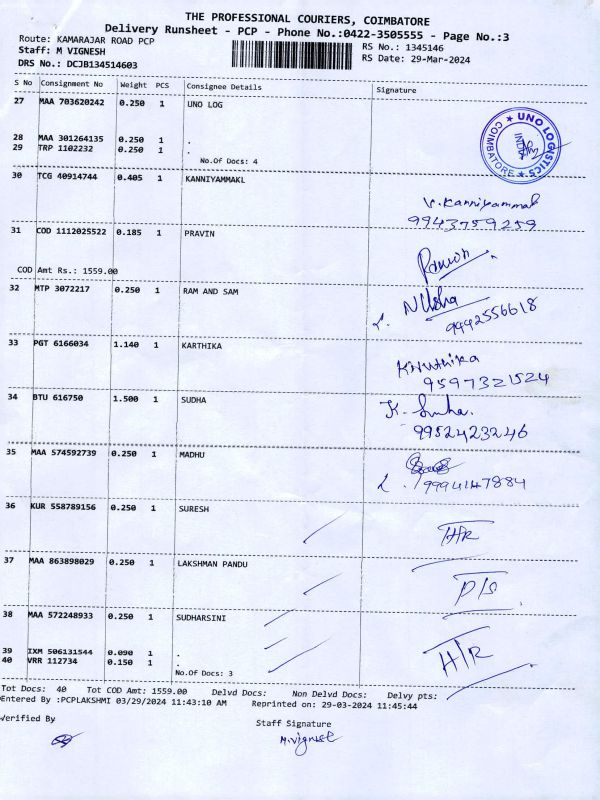 THE PROFESSIONAL COURIERS, COIMBATORE
Delivery Runsheet - PCP - Phone No.:0422-3505555 - Page No.:3
Route: KAMARAJAR ROAD PCP
RS No.: 1345146
Staff: M VIGNESH
RS Date: 29-Mar-2024
DRS No.: DCJB134514603
S No Consignment No Weight PCS Consignee Details Signature
27 MAA 703620242 0.250 1 UNO LOG
UNO LOGISTICS
COIMBATORE
INDIA
28 MAA 301264135 0.250 1 .
29 TRP 1102232 0.250 1 .
No.Of Docs: 4
30 TCG 40914744 0.405 1 KANNIYAMMAKL
V. Kanniyammal
9943759259
31 COD 1112025522 0.185 1 PRAVIN
COD Amt Rs.: 1559.00
32 MTP 3072217 0.250 1 RAM AND SAM
9992556618
33 PGT 6166034 1.140 1 KARTHIKA
9597321524
34 BTU 616750 1.500 1 SUDHA
9952423246
35 MAA 574592739 0.250 1 MADHU
9994147884
36 KUR 558789156 0.250 1 SURESH
37 MAA 863898029 0.250 1 LAKSHMAN PANDU
D/S
38 MAA 572248933 0.250 1 SUDHARSINI
39 IXM 506131544 0.090 1 .
40 VRR 112734 0.150 1 .
H/R
No.Of Docs: 3
Tot Docs: 40 Tot COD Amt: 1559.00 Delvd Docs: Non Delvd Docs: Delvy pts:
Entered By :PCPLAKSHMI 03/29/2024 11:43:10 AM Reprinted on: 29-03-2024 11:45:44
Verified By
Staff Signature
M.Vignesh